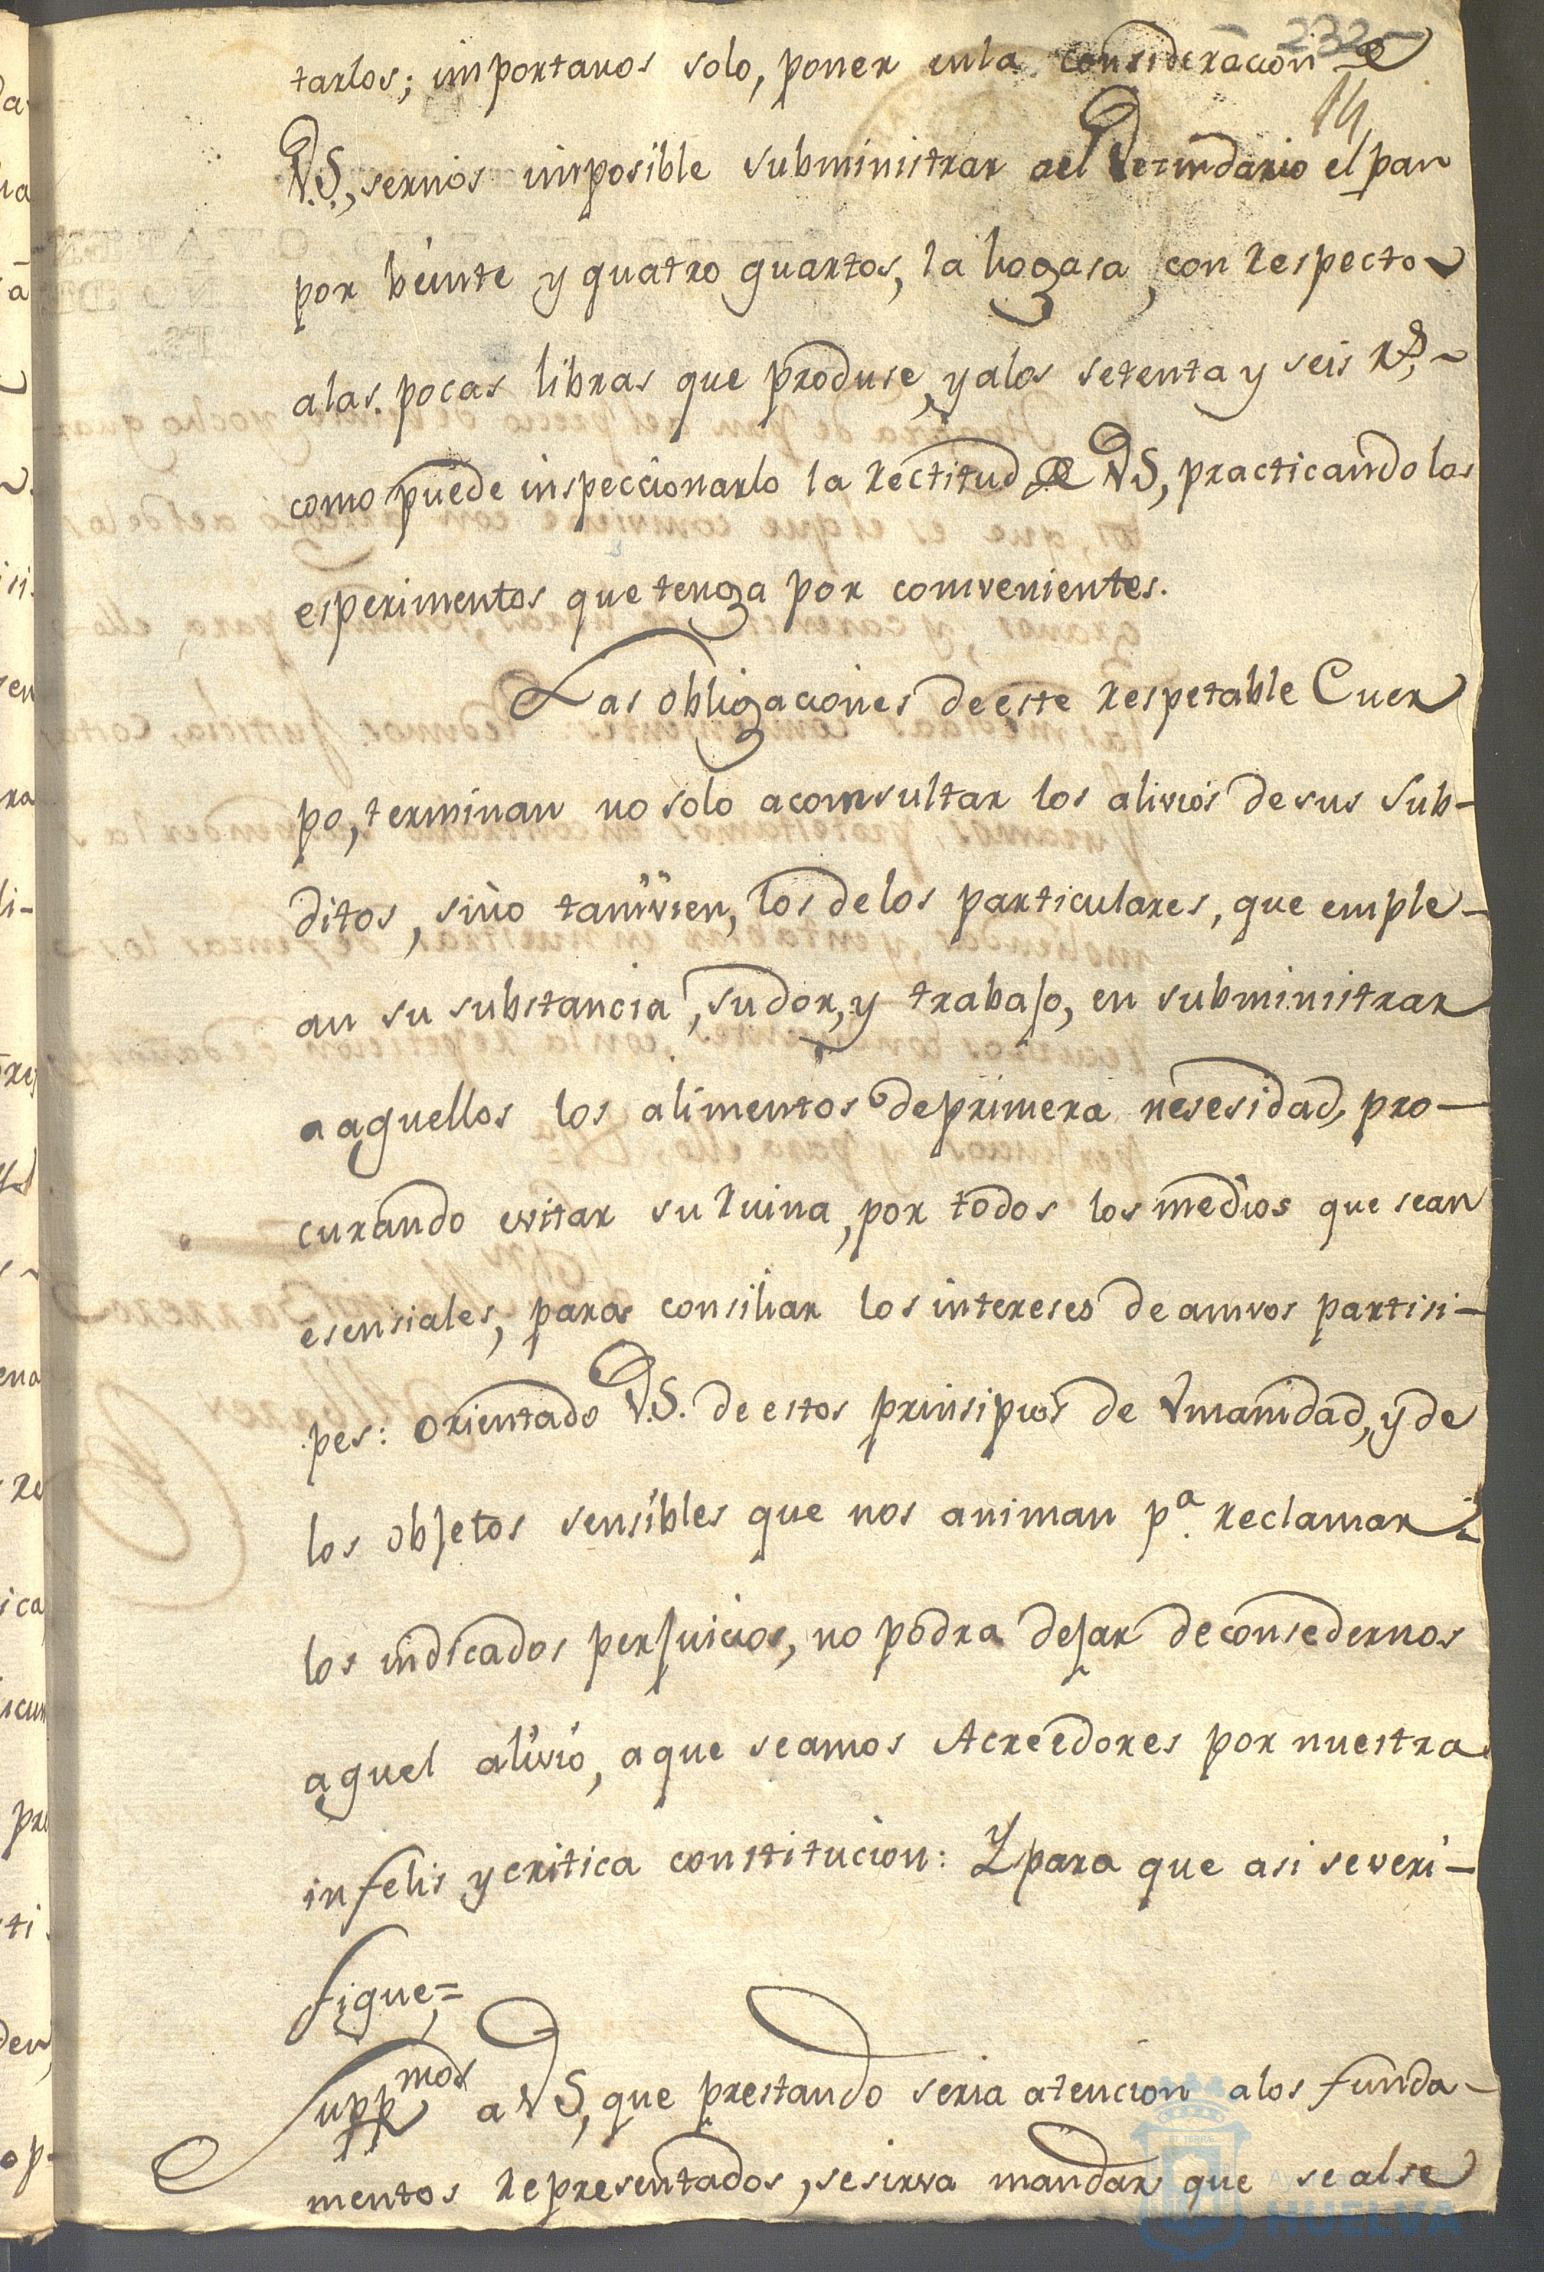 232
14
tarlos; importanos solo, poner en la consideracion de
VS., sernos imposible subministrar ael Vecindario el pan
por beinte y quatro quartos, la hogasa, con respecto
alas pocas libras que produse, y alos setenta y seis rs,
como puede inspeccionarlo la rectitud de VS, practicando los
esperimentos que tenga por comvenientes.
Las obligaciones de este respetable Cuer
po, terminan no solo a comsultar los alivios de sus sub-
ditos, sino tamvien, los delos particulares, que emple-
an su substancia, sudor, y trabajo, en subministrar
a aquellos los alimentos de primera nesesidad, pro-
curando evitar su ruina, por todos los medios que sean
esensiales, para consiliar los intereses de amvos partisi-
pes: orientado V.S. de estos prinsipios de Vmanidad, y de
los objetos sensibles que nos animan pa. reclamar
los indicados perjuicios, no podra dejar de consedernos
aquel alivio, a que seamos Acreedores por nuestra
infelis y critica constitucion: Y para que asi se veri-
fique,=
Suppmos a VS, que prestando seria atencion alos funda-
mentos representados, se sirva mandar que se alse
HUELVA